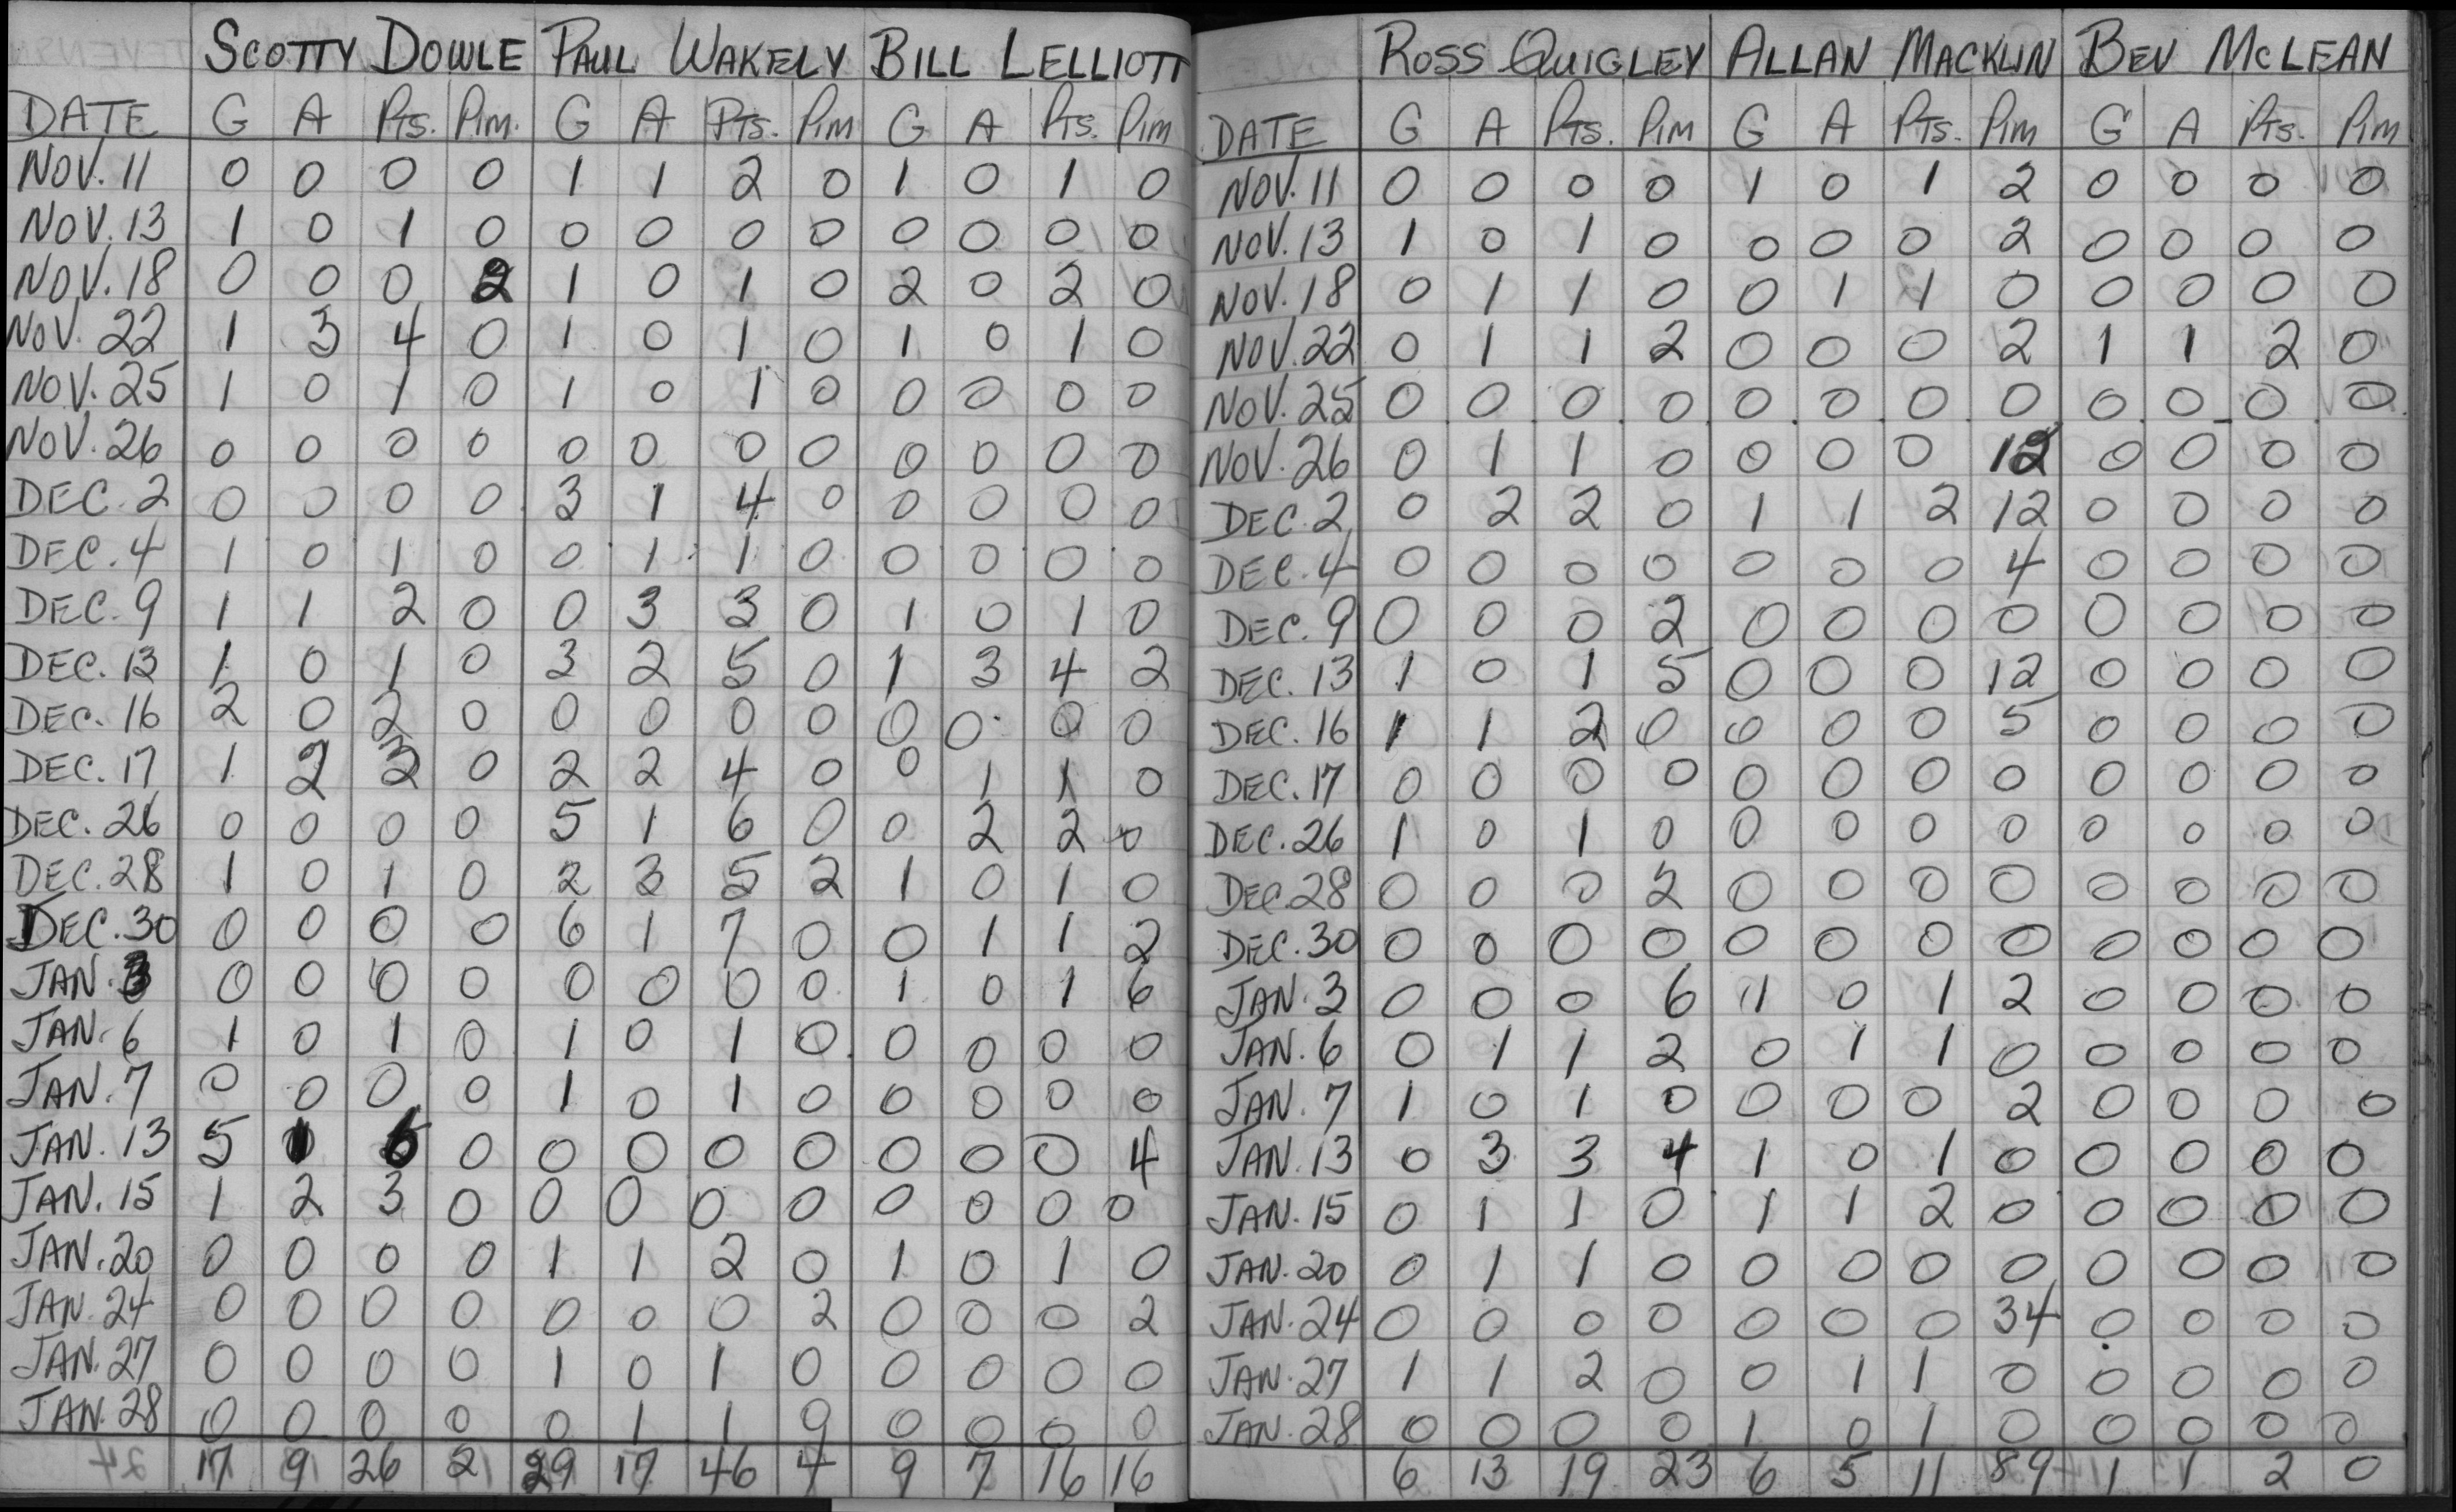 SCOTTY DOWLE PAUL WAKELY BILL LELLIOTT
DATE G A Pts. Pim. G A Pts. Pim G A Pts. Pim
NOV. 11 0 0 0 0 1 1 2 0 1 0 1 0
NOV. 13 1 0 1 0 0 0 0 0 0 0 0 0
NOV. 18 0 0 0 2 1 0 1 0 2 0 2 0
NOV. 22 1 3 4 0 1 0 1 0 1 0 1 0
NOV. 25 1 0 1 0 1 0 1 0 0 0 0 0
NOV. 26 0 0 0 0 0 0 0 0 0 0 0 0
DEC. 2 0 0 0 0 3 1 4 0 0 0 0 0
DEC. 4 1 0 1 0 0 1 1 0 0 0 0 0
DEC. 9 1 1 2 0 0 3 3 0 1 0 1 0
DEC. 13 1 0 1 0 3 2 5 0 1 3 4 2
DEC. 16 2 0 2 0 0 0 0 0 0 0 0 0
DEC. 17 1 2 3 0 2 2 4 0 0 1 1 0
DEC. 26 0 0 0 0 5 1 6 0 0 2 2 0
DEC. 28 1 0 1 0 2 3 5 2 1 0 1 0
DEC. 30 0 0 0 0 6 1 7 0 0 1 1 2
JAN. 3 0 0 0 0 0 0 0 0 1 0 1 6
JAN. 6 1 0 1 0 1 0 1 0 0 0 0 0
JAN. 7 0 0 0 0 1 0 1 0 0 0 0 0
JAN. 13 5 1 6 0 0 0 0 0 0 0 0 4
JAN. 15 1 2 3 0 0 0 0 0 0 0 0 0
JAN. 20 0 0 0 0 1 1 2 0 1 0 1 0
JAN. 24 0 0 0 0 0 0 0 2 0 0 0 2
JAN. 27 0 0 0 0 1 0 1 0 0 0 0 0
JAN. 28 0 0 0 0 0 1 1 0 0 0 0 0
17 9 26 2 29 17 46 4 9 7 16 16
ROSS QUIGLEY ALLAN MACKLIN BEV MCLEAN
DATE G A Pts. Pim G A Pts. Pim G A Pts. Pim
NOV. 11 0 0 0 0 1 0 1 2 0 0 0 0
NOV. 13 1 0 1 0 0 0 0 2 0 0 0 0
NOV. 18 0 1 1 0 0 1 1 0 0 0 0 0
NOV. 22 0 1 1 2 0 0 0 2 1 1 2 0
NOV. 25 0 0 0 0 0 0 0 0 0 0 0 0
NOV. 26 0 1 1 0 0 0 0 12 0 0 0 0
DEC. 2 0 2 2 0 1 1 2 12 0 0 0 0
DEC. 4 0 0 0 0 0 0 0 4 0 0 0 0
DEC. 9 0 0 0 2 0 0 0 0 0 0 0 0
DEC. 13 1 0 1 5 0 0 0 12 0 0 0 0
DEC. 16 1 1 2 0 0 0 0 5 0 0 0 0
DEC. 17 0 0 0 0 0 0 0 0 0 0 0 0
DEC. 26 1 0 1 0 0 0 0 0 0 0 0 0
DEC. 28 0 0 0 2 0 0 0 0 0 0 0 0
DEC. 30 0 0 0 0 0 0 0 0 0 0 0 0
JAN. 3 0 0 0 6 1 0 1 2 0 0 0 0
JAN. 6 0 1 1 2 0 1 1 0 0 0 0 0
JAN. 7 1 0 1 0 0 0 0 2 0 0 0 0
JAN. 13 0 3 3 4 1 0 1 0 0 0 0 0
JAN. 15 0 1 1 0 1 1 2 0 0 0 0 0
JAN. 20 0 1 1 0 0 0 0 0 0 0 0 0
JAN. 24 0 0 0 0 0 0 0 34 0 0 0 0
JAN. 27 1 1 2 0 0 1 1 0 0 0 0 0
JAN. 28 0 0 0 0 1 0 1 0 0 0 0 0
6 13 19 23 6 5 11 89 1 1 2 0